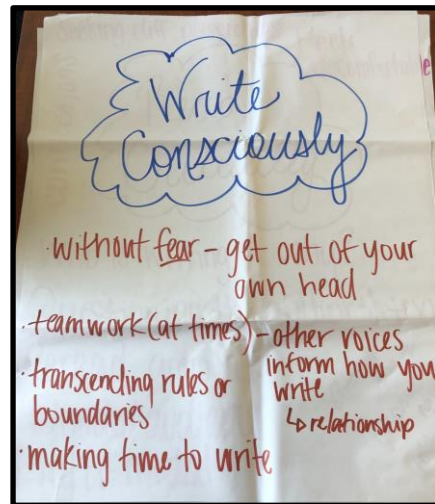 Write
Consciously
· without fear - get out of your
own head
· teamwork (at times) - other voices
inform how you
write
↳ relationship
· transcending rules or
boundaries
· making time to write